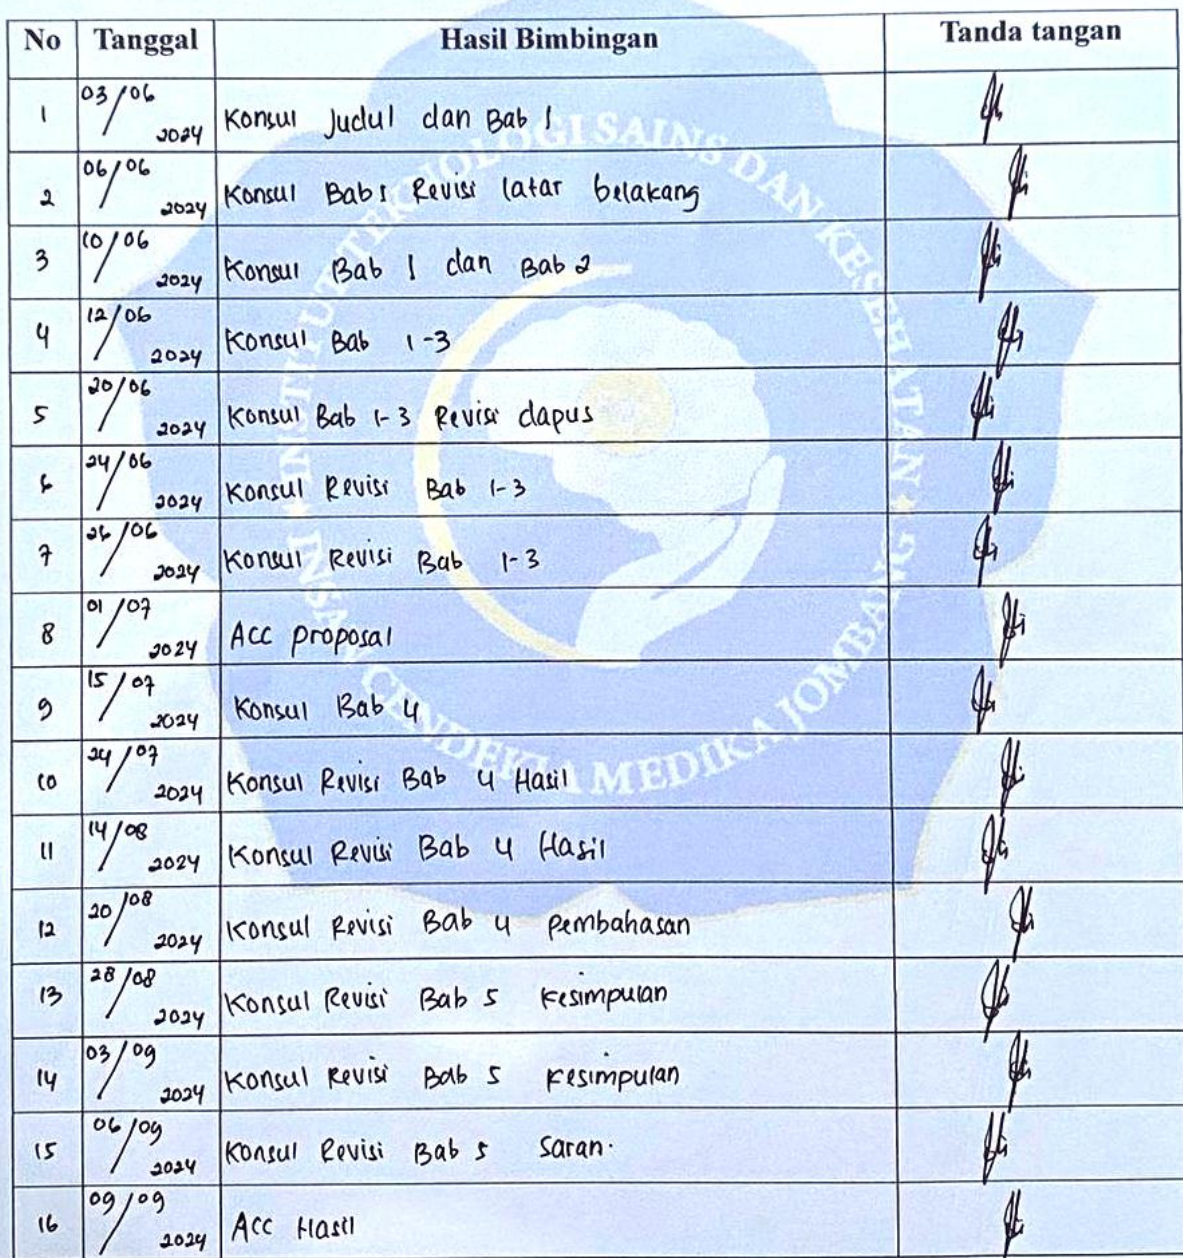 No Tanggal Hasil Bimbingan Tanda tangan
1 03/06 2024 Konsul Judul dan Bab 1
2 06/06 2024 Konsul Bab 1 Revisi latar belakang
3 10/06 2024 Konsul Bab 1 dan Bab 2
4 12/06 2024 Konsul Bab 1-3
5 20/06 2024 Konsul Bab 1-3 Revisi dapus
6 24/06 2024 Konsul Revisi Bab 1-3
7 26/06 2024 Konsul Revisi Bab 1-3
8 01/07 2024 Acc proposal
9 15/07 2024 Konsul Bab 4
10 24/07 2024 Konsul Revisi Bab 4 Hasil
11 14/08 2024 Konsul Revisi Bab 4 Hasil
12 20/08 2024 Konsul Revisi Bab 4 pembahasan
13 28/08 2024 Konsul Revisi Bab 5 Kesimpulan
14 03/09 2024 Konsul Revisi Bab 5 Kesimpulan
15 06/09 2024 Konsul Revisi Bab 5 Saran.
16 09/09 2024 Acc Hasil
INSTITUT TEKNOLOGI SAINS DAN KESEHATAN
INSAN CENDEKIA MEDIKA JOMBANG